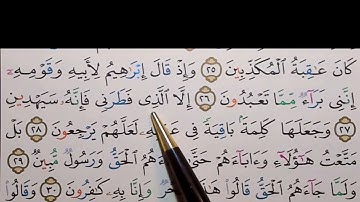 كَانَ عَـٰقِبَةُ ٱلْمُكَذِّبِينَ ٢٥ وَإِذْ قَالَ إِبْرَٰهِيمُ لِأَبِيهِ وَقَوْمِهِۦٓ
إِنَّنِى بَرَآءٌ مِّمَّا تَعْبُدُونَ ٢٦ إِلَّا ٱلَّذِى فَطَرَنِى فَإِنَّهُۥ سَيَهْدِينِ
٢٧ وَجَعَلَهَا كَلِمَةًۢ بَاقِيَةً فِى لَعَلَّهُمْ يَرْجِعُونَ ٢٨ بَلْ
مَتَّعْتُ هَـٰٓؤُلَآءِ وَءَابَآءَهُمْ حَتَّىٰ ٱلْحَقُّ وَرَسُولٌ مُّبِينٌ ٢٩
وَلَمَّا جَآءَهُمُ ٱلْحَقُّ قَالُوا۟ هَـٰذَا وَإِنَّا بِهِۦ كَـٰفِرُونَ ٣٠ وَقَالُوا۟